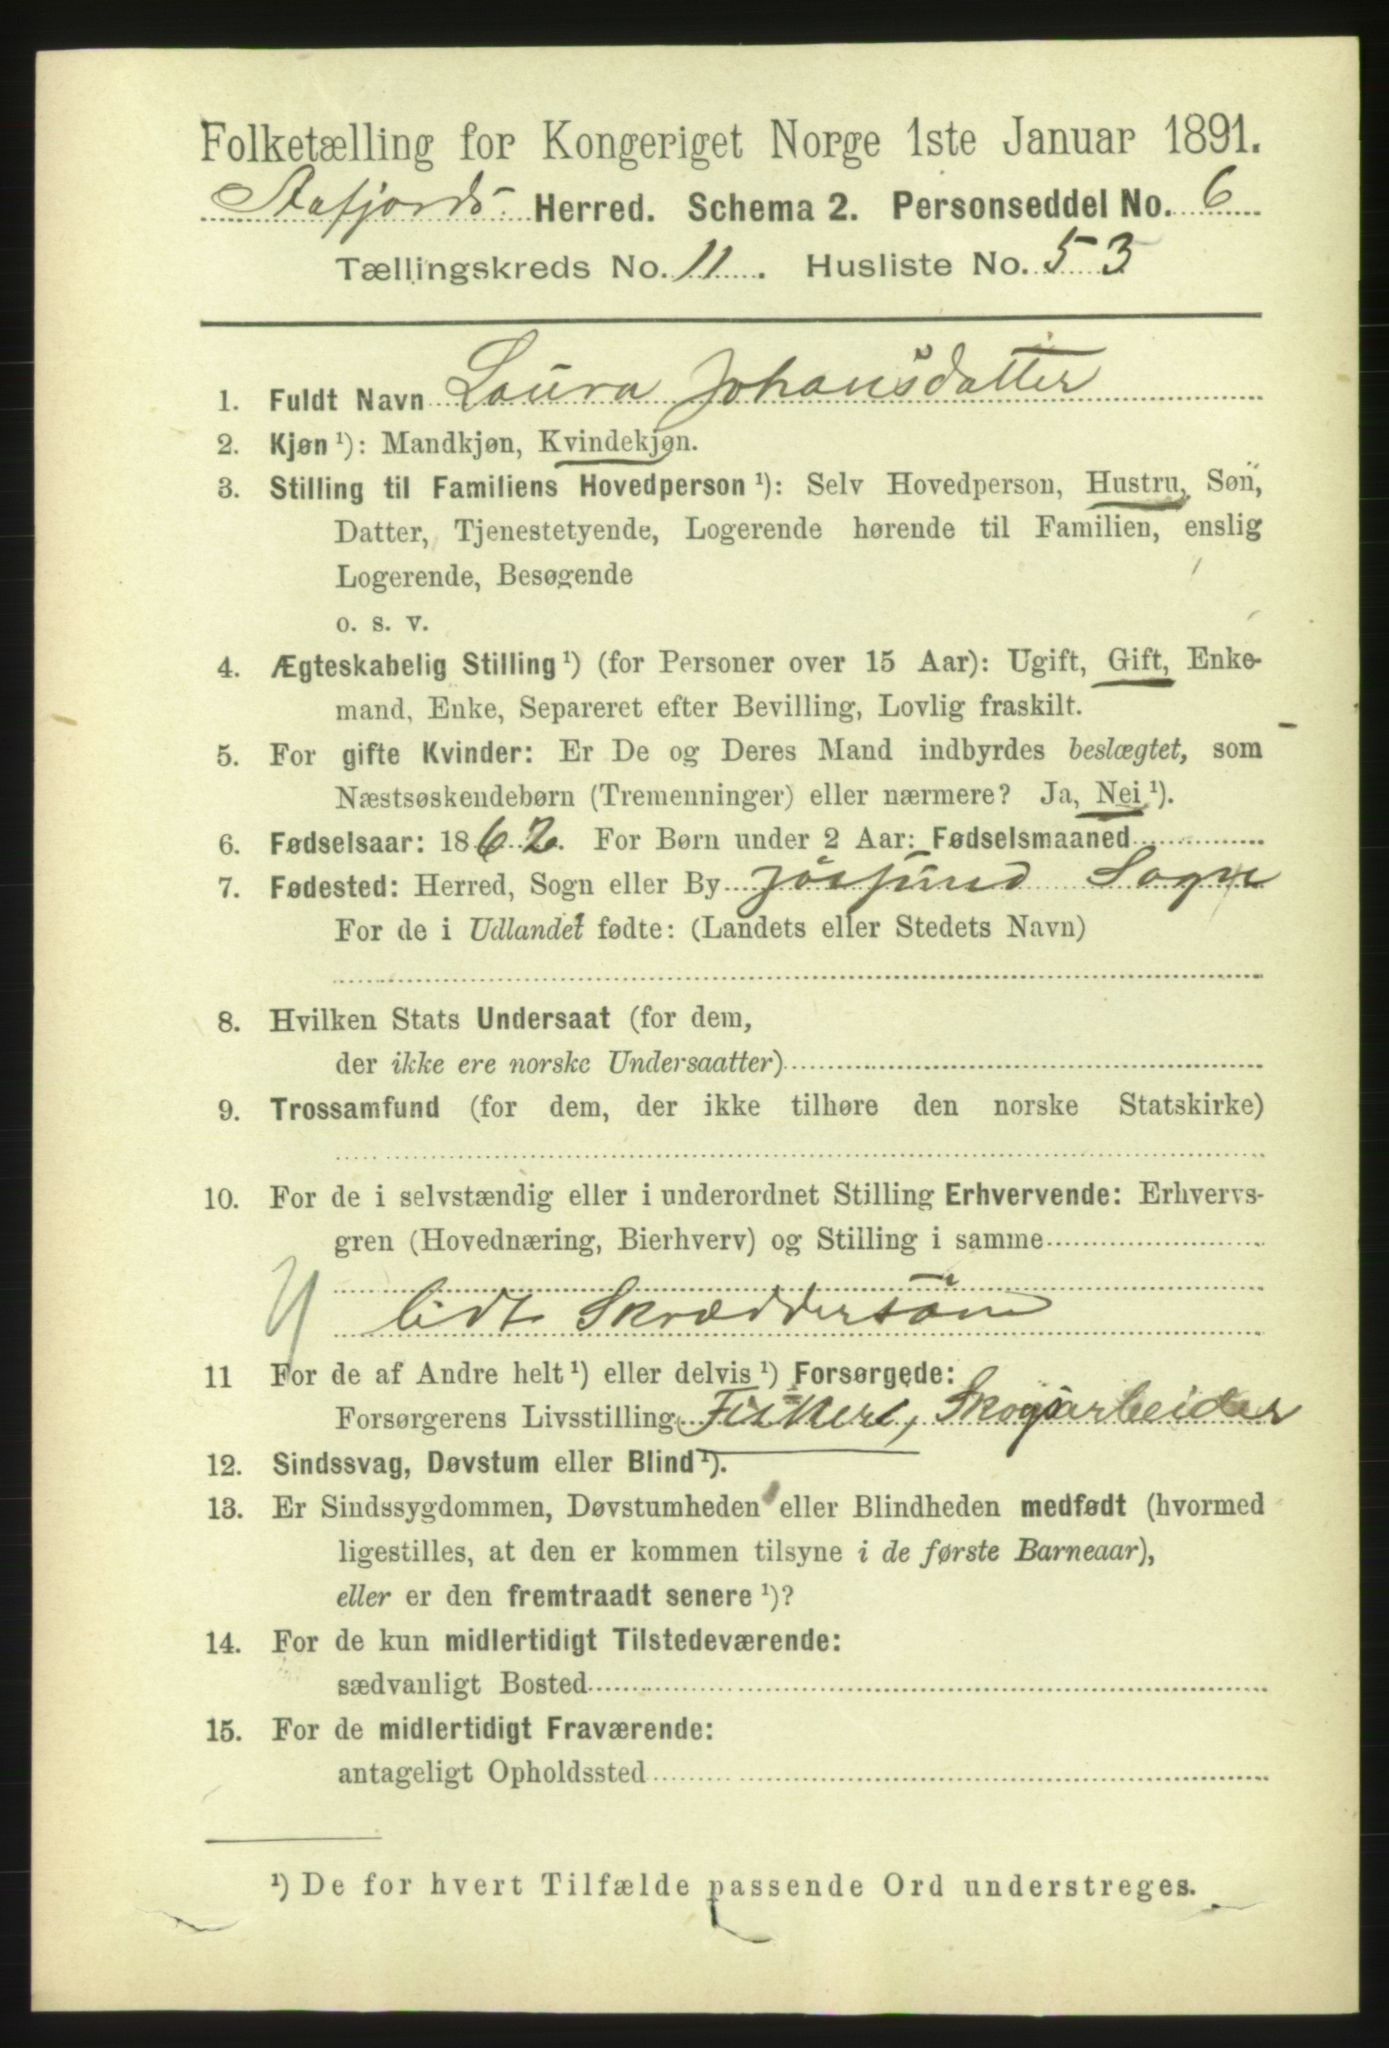 Folketælling for Kongeriget Norge 1ste Januar 1891.
Aafjords Herred. Schema 2. Personseddel No. 6
Tællingskreds No. 11. Husliste No. 53
1. Fuldt Navn Laura Johansdatter
2. Kjøn ¹): Mandkjøn, Kvindekjøn.
3. Stilling til Familiens Hovedperson ¹): Selv Hovedperson, Hustru, Søn,
Datter, Tjenestetyende, Logerende hørende til Familien, enslig
Logerende, Besøgende
o. s. v.
4. Ægteskabelig Stilling ¹) (for Personer over 15 Aar): Ugift, Gift, Enke-
mand, Enke, Separeret efter Bevilling, Lovlig fraskilt.
5. For gifte Kvinder: Er De og Deres Mand indbyrdes beslægtet, som
Næstsøskendebørn (Tremenninger) eller nærmere? Ja, Nei ¹).
6. Fødselsaar: 1862. For Børn under 2 Aar: Fødselsmaaned
7. Fødested: Herred, Sogn eller By Jøssund Sogn
For de i Udlandet fødte: (Landets eller Stedets Navn)
8. Hvilken Stats Undersaat (for dem,
der ikke ere norske Undersaatter)
9. Trossamfund (for dem, der ikke tilhøre den norske Statskirke)
10. For de i selvstændig eller i underordnet Stilling Erhvervende: Erhvervs-
gren (Hovednæring, Bierhverv) og Stilling i samme
lidt Skræddersøm
11 For de af Andre helt ¹) eller delvis ¹) Forsørgede:
Forsørgerens Livsstilling Fiskeri, Skogsarbeider
12. Sindssvag, Døvstum eller Blind ¹).
13. Er Sindssygdommen, Døvstumheden eller Blindheden medfødt (hvormed
ligestilles, at den er kommen tilsyne i de første Barneaar),
eller er den fremtraadt senere ¹)?
14. For de kun midlertidigt Tilstedeværende:
sædvanligt Bosted
15. For de midlertidigt Fraværende:
antageligt Opholdssted
¹) De for hvert Tilfælde passende Ord understreges.